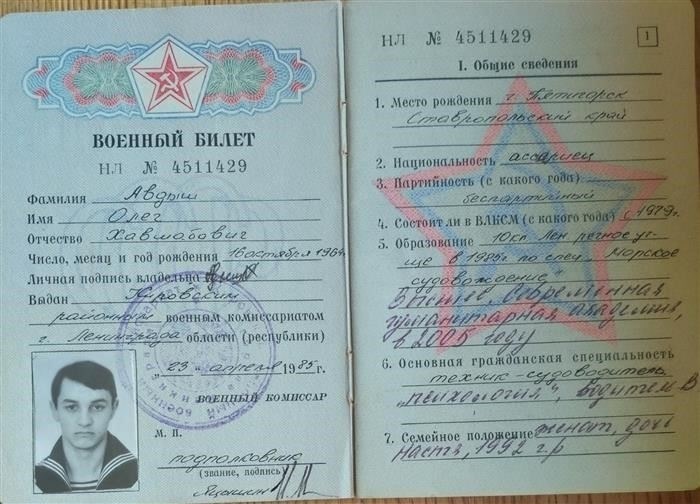 ВОЕННЫЙ БИЛЕТ
НЛ № 4511429
Фамилия Авдыш
Имя Олег
Отчество Хавшабович
Число, месяц и год рождения 16 октября 1964
Личная подпись владельца
Выдан Кировским
районным военным комиссариатом
г. Ленинграда области (республики)
„23„ апреля 1985г.
ВОЕННЫЙ КОМИССАР
М. П.
подполковник
(звание, подпись)
НЛ № 4511429
1
I. Общие сведения
1. Место рождения г. Пятигорск
Ставропольский край
2. Национальность ассириец
3. Партийность (с какого года)
беспартийный
4. Состоит ли в ВЛКСМ (с какого года) с 1979г.
5. Образование 10кл Лен речное уч-
ще в 1985г по спец. Морское
судовождение"
Современная
гуманитарная академия,
в 2005 году
6. Основная гражданская специальность
техник-судоводитель
"психология", Водитель В
7. Семейное положение женат, дочь
Настя, 1992 г.р